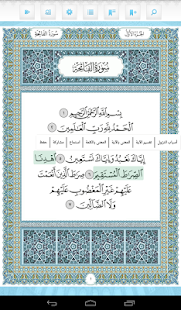 الجزء الأول
سورة الفاتحة
سُورَةُ الفَاتِحَةِ
بِسْمِ ٱللَّهِ ٱلرَّحْمَٰنِ ٱلرَّحِيمِ ١
ٱلْحَمْدُ لِلَّهِ رَبِّ ٱلْعَٰلَمِينَ ٢
أسباب النزول تفسير الآية استماع مشاركة حفظ
إِيَّاكَ نَعْبُدُ وَإِيَّاكَ نَسْتَعِينُ ٥ ٱهْدِنَا
ٱلصِّرَٰطَ ٱلْمُسْتَقِيمَ ٦ صِرَٰطَ ٱلَّذِينَ أَنْعَمْتَ
عَلَيْهِمْ غَيْرِ ٱلْمَغْضُوبِ عَلَيْهِمْ
وَلَا ٱلضَّآلِّينَ ٧